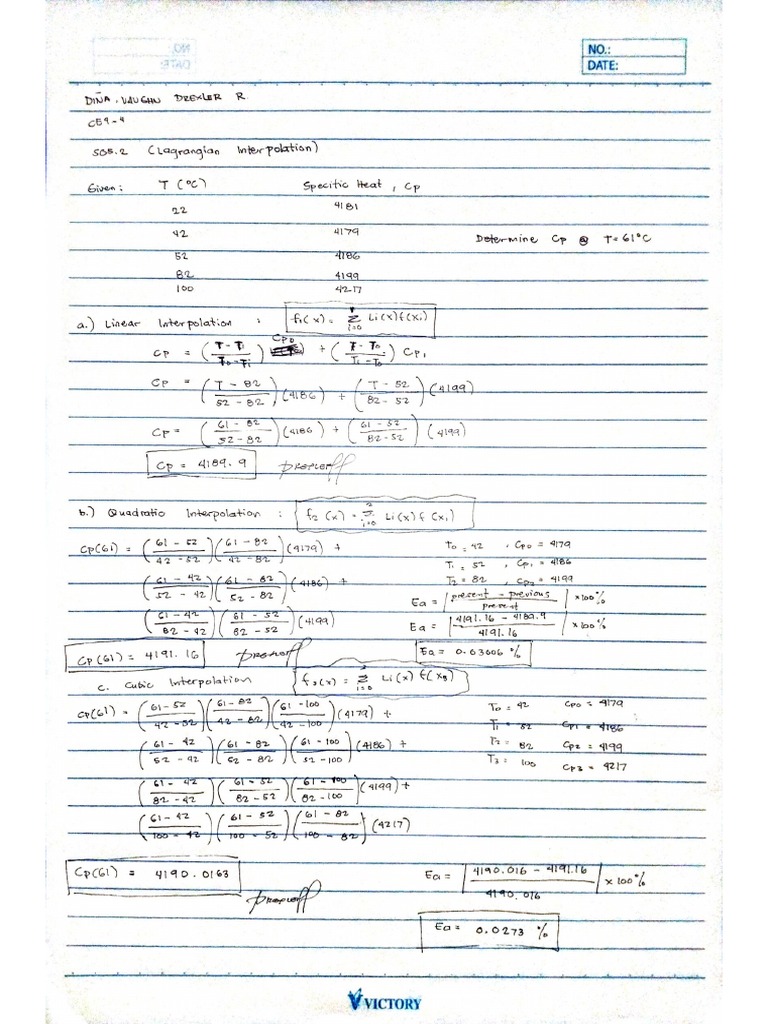 NO.:
DATE:
DIÑA, VAUGHN DREXLER R.
CE9-4
SG5.2 (Lagrangian Interpolation)
Given: T (°C) Specific Heat, Cp
22 4181
42 4179
Determine Cp @ T=61°C
52 4186
82 4199
100 4217
a.) Linear Interpolation : f₁(x) = Σ i=0 Li(x)f(xi)
Cp = (T - T₁ / T₀ - T₁) Cp₀ + (T - T₀ / T₁ - T₀) Cp₁
Cp = (T - 82 / 52 - 82)(4186) + (T - 52 / 82 - 52)(4199)
Cp = (61 - 82 / 52 - 82)(4186) + (61 - 52 / 82 - 52)(4199)
Cp = 4189.9
b.) Quadratic Interpolation : f₂(x) = 2 Σ i=0 Li(x)f(xi)
Cp(61) = (61 - 52 / 42 - 52)(61 - 82 / 42 - 82)(4179) +
(61 - 42 / 52 - 42)(61 - 82 / 52 - 82)(4186) +
(61 - 42 / 82 - 42)(61 - 52 / 82 - 52)(4199)
T₀ = 42 , Cp₀ = 4179
T₁ = 52 , Cp₁ = 4186
T₂ = 82 , Cp₂ = 4199
Ea = | present - previous / present | x100%
Ea = | 4191.16 - 4189.9 / 4191.16 | x100%
Cp(61) = 4191.16
Ea = 0.03006 %
c. Cubic Interpolation f₃(x) = Σ i=0 Li(x) f(xi)
Cp(61) = (61 - 52 / 42 - 52)(61 - 82 / 42 - 82)(61 - 100 / 42 - 100)(4179) +
(61 - 42 / 52 - 42)(61 - 82 / 52 - 82)(61 - 100 / 52 - 100)(4186) +
(61 - 42 / 82 - 42)(61 - 52 / 82 - 52)(61 - 100 / 82 - 100)(4199) +
(61 - 42 / 100 - 42)(61 - 52 / 100 - 52)(61 - 82 / 100 - 82)(4217)
T₀ = 42 Cp₀ = 4179
T₁ = 52 Cp₁ = 4186
T₂ = 82 Cp₂ = 4199
T₃ = 100 Cp₃ = 4217
Cp(61) = 4190.0163
Ea = | 4190.016 - 4191.16 / 4190.016 | x 100%
Ea = 0.0273 %
VICTORY